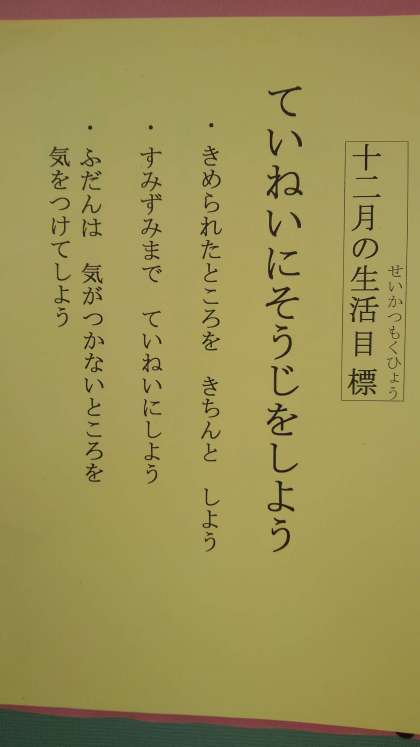 せいかつもくひょう
十二月の生活目標
ていねいにそうじをしよう
・きめられたところを　きちんと　しよう
・すみずみまで　ていねいにしよう
・ふだんは　気がつかないところを
気をつけてしよう